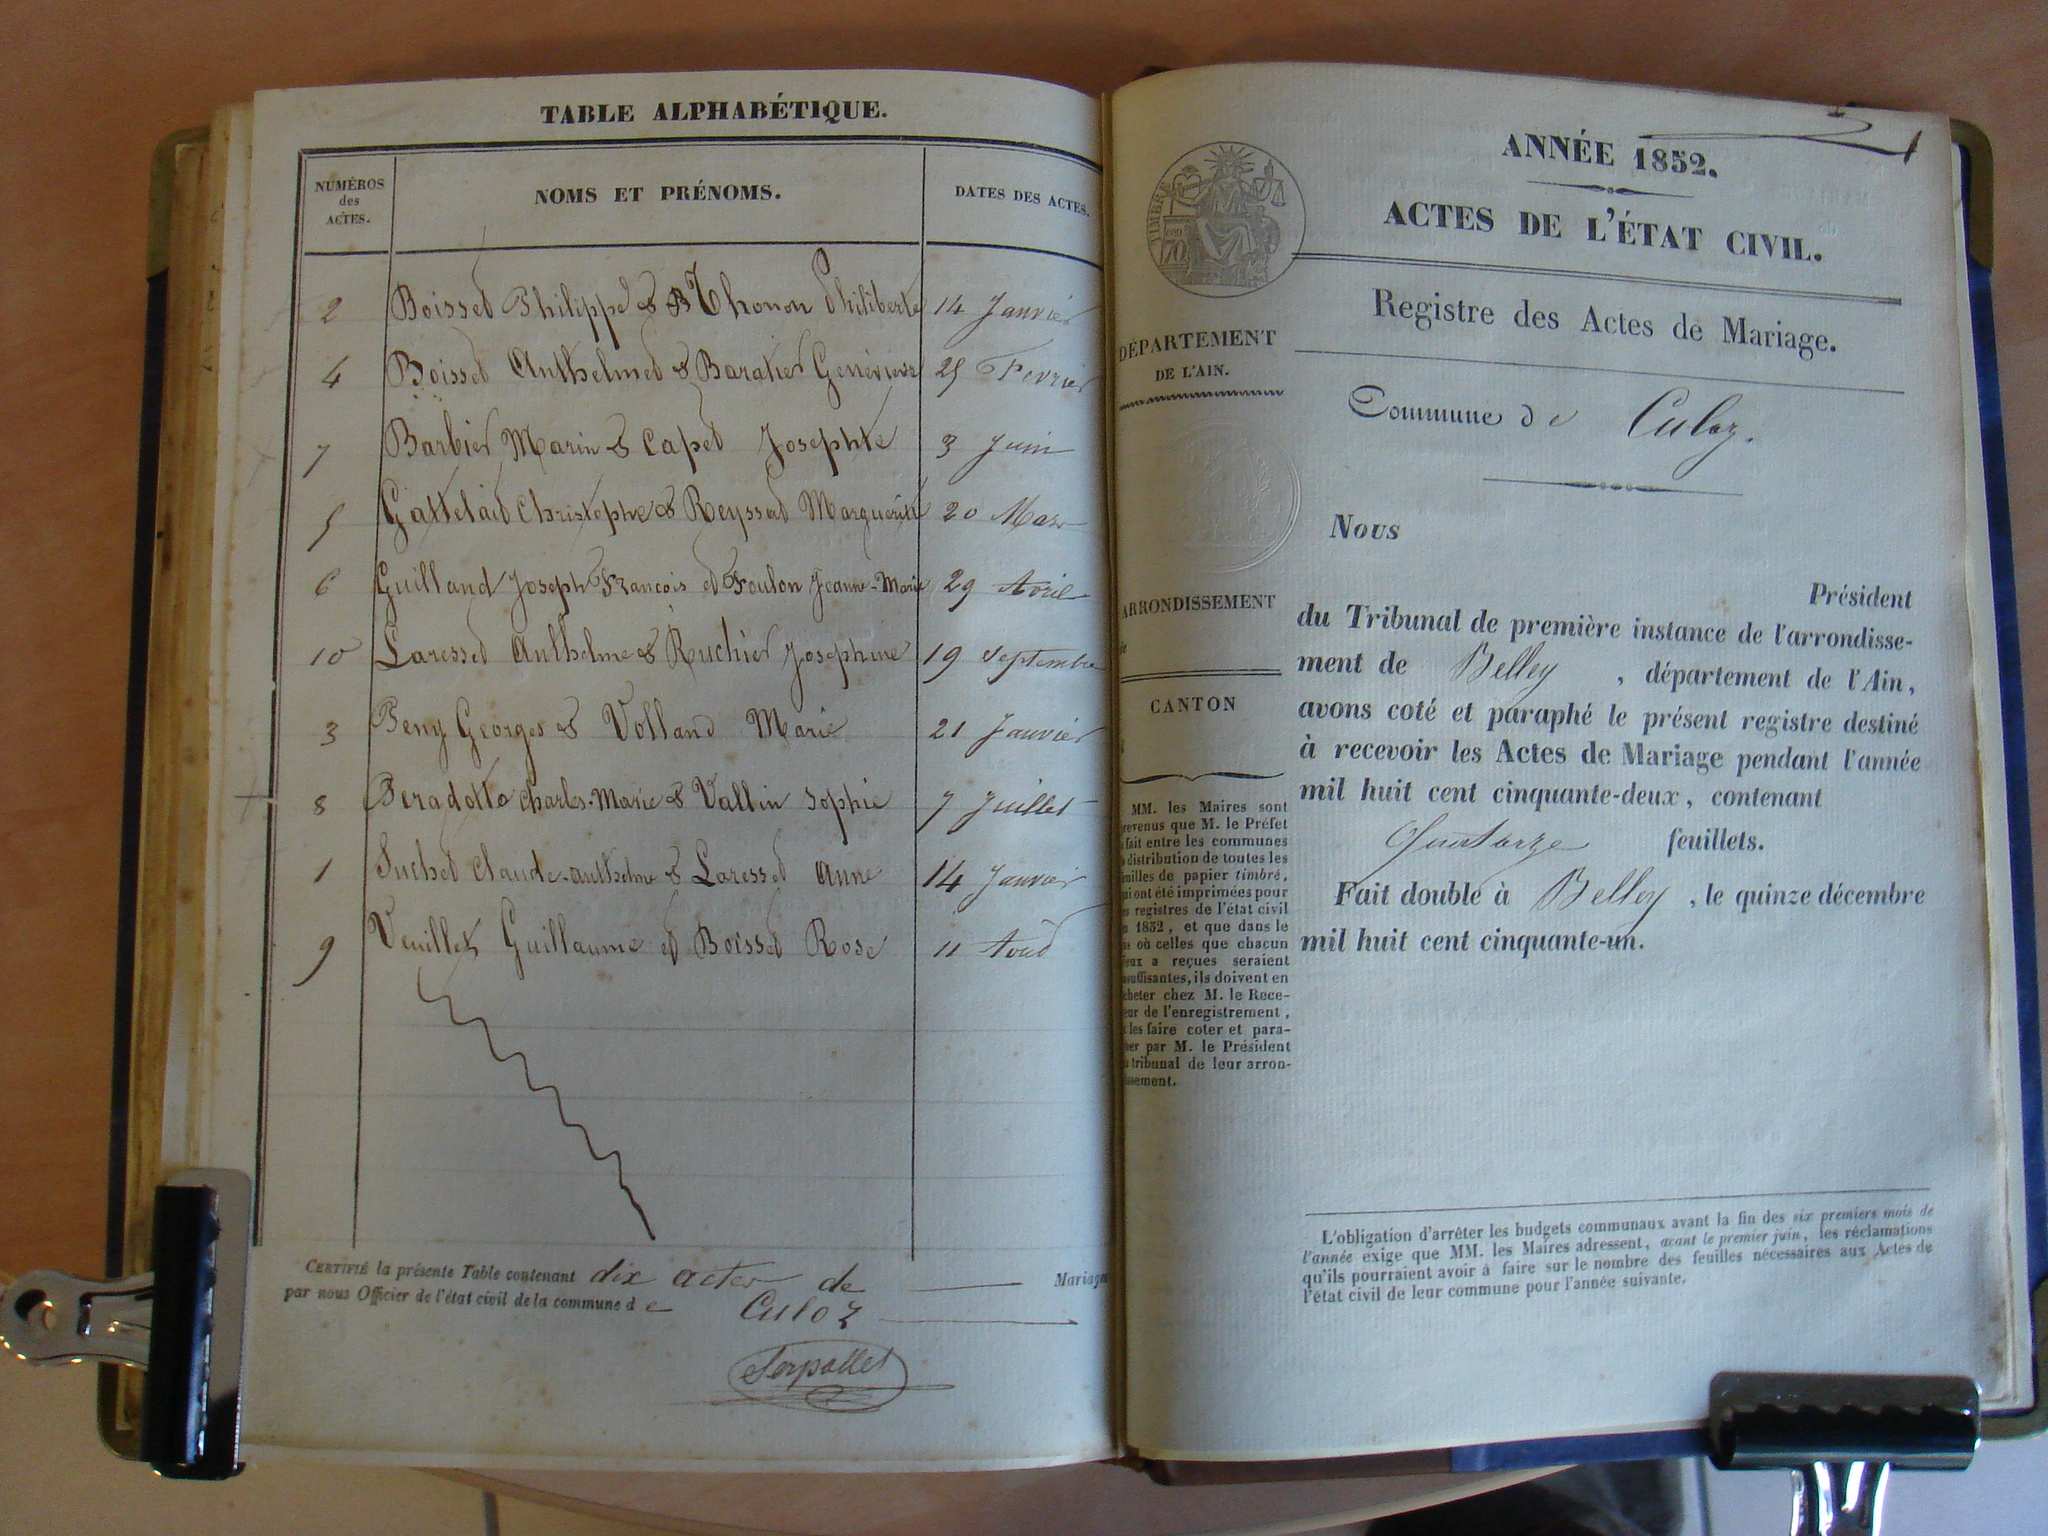 TABLE ALPHABÉTIQUE.
NUMÉROS
des
ACTES.
NOMS ET PRÉNOMS.
DATES DES ACTES.
2 Boisset Philippe & Thonon Philiberte 14 Janvier
4 Boisset Anthelmed & Baratier Genevieve 25 Fevrier
7 Barbier Marin & Capet Josephte 3 Juin
5 Christophe & Reyssed Marguerite 20 Mars
6 Guilland Joseph François et Foulon Jeanne-Marie 29 Avril
10 Laressed Anthelme & Ruchier Josephine 19 Septembre
3 Peny Georges & Volland Marie 21 Janvier
8 Peradotto Charles-Marie & Vallin Sophie 7 Juillet
1 Suchet Claude-Anthelme & Laressed Anne 14 Janvier
9 Veuillet Guillaume et Boissed Rose 11 Aoud
CERTIFIÉ la présente Table contenant dix actes de Mariage
par nous Officier de l'état civil de la commune de Culoz
Serpollet
1
ANNÉE 1852.
ACTES DE L'ÉTAT CIVIL.
TIMBRE
70
Registre des Actes de Mariage.
DÉPARTEMENT
DE L'AIN.
Commune de Culoz.
Nous
Président
ARRONDISSEMENT
du Tribunal de première instance de l'arrondisse-
ment de Belley, département de l'Ain,
CANTON
avons coté et paraphé le présent registre destiné
à recevoir les Actes de Mariage pendant l'année
mil huit cent cinquante-deux, contenant
Quatorze feuillets.
Fait double à Belley, le quinze décembre
mil huit cent cinquante-un.
MM. les Maires sont
revenus que M. le Préfet
fait entre les communes
distribution de toutes les
uilles de papier timbré,
ui ont été imprimées pour
es registres de l'état civil
1852, et que dans le
où celles que chacun
eux a reçues seraient
nsuffisantes, ils doivent en
cheter chez M. le Rece-
eur de l'enregistrement,
les faire coter et para-
her par M. le Président
tribunal de leur arron-
issement.
L'obligation d'arrêter les budgets communaux avant la fin des six premiers mois de
l'année exige que MM. les Maires adressent, avant le premier juin, les réclamations
qu'ils pourraient avoir à faire sur le nombre des feuilles nécessaires aux Actes de
l'état civil de leur commune pour l'année suivante.